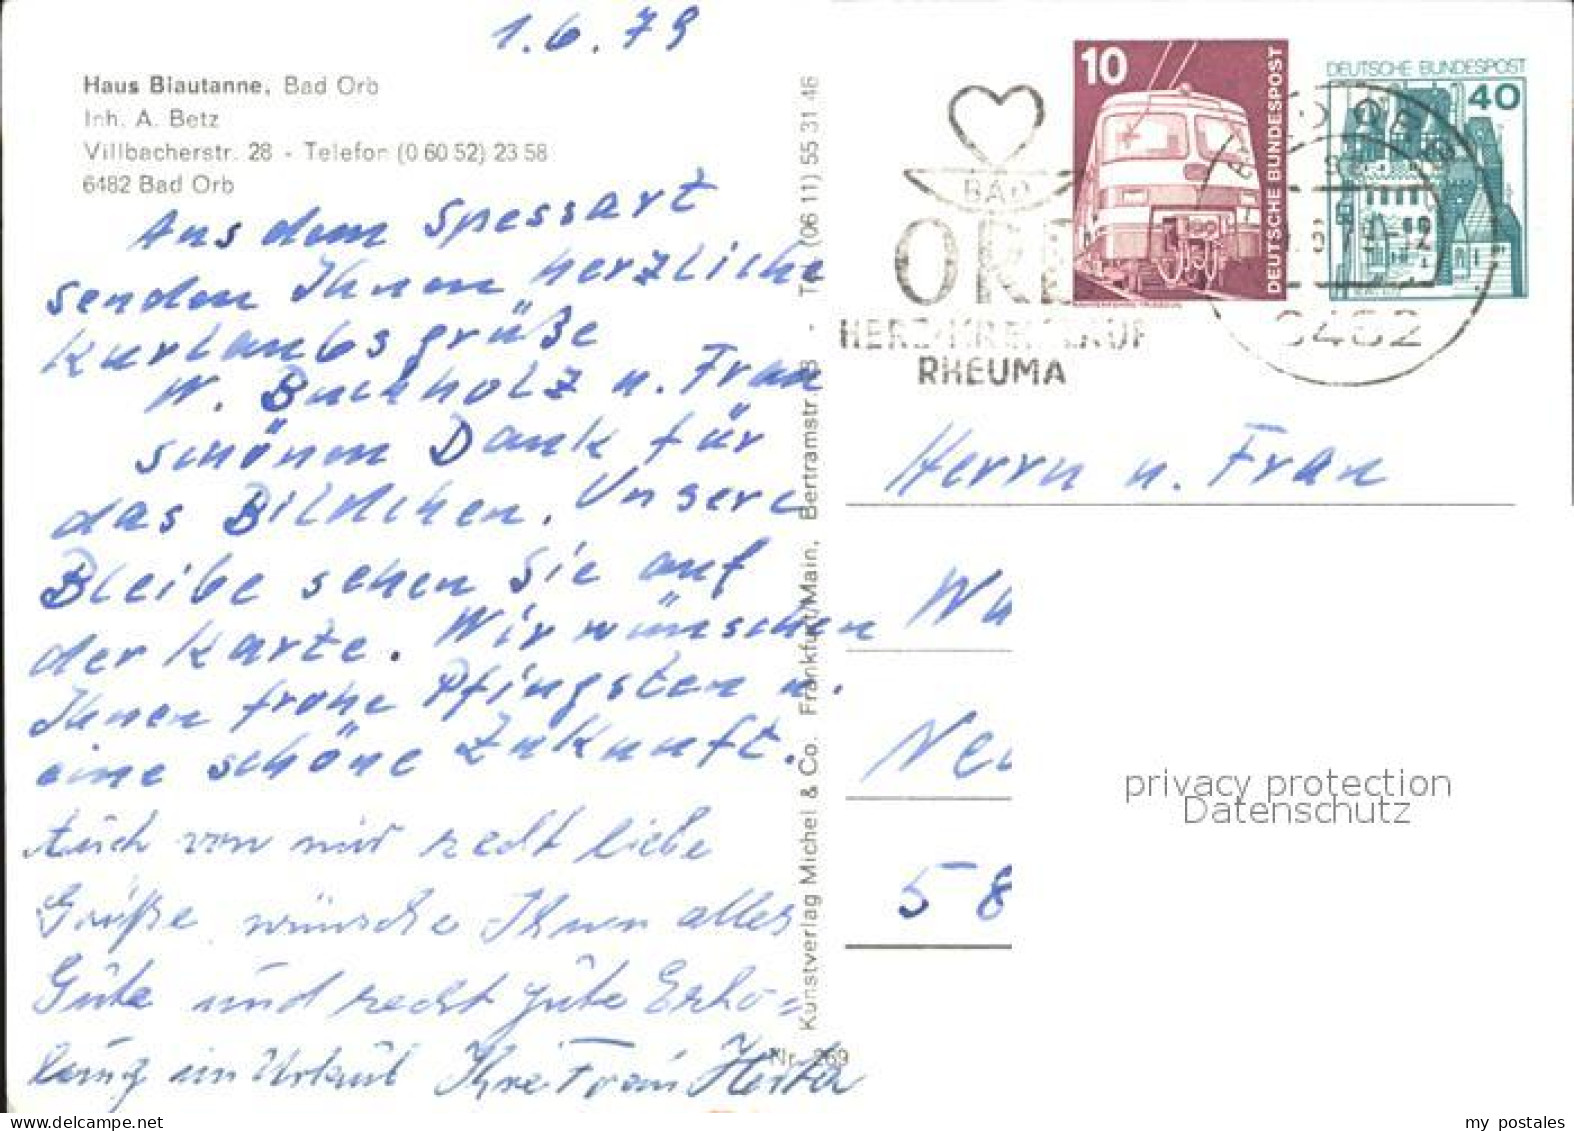 1.6.79
Haus Blautanne, Bad Orb
Inh. A. Betz
Villbacherstr. 28 - Telefon (0 60 52) 23 58
6482 Bad Orb
Aus dem Spessart
senden Ihnen herzliche
Kurlaubsgrüße
W. Buchholz u. Frau
schönen Dank für
das Bildchen. Unsere
Bleibe sehen Sie auf
der Karte. Wir wünschen
Ihnen frohe Pfingsten u.
eine schöne Zukunft.
Auch von mir recht liebe
Grüße wünsche Ihnen alles
Gute und recht gute Erho-
lung im Urlaub Ihre Frau Herta
Kunstverlag Michel & Co. Frankfurt/Main, Bertramstr. (06 11) 55 31 46
Nr. 269
BAD
ORB
HERZ-KREISLAUF
RHEUMA
10
DEUTSCHE BUNDESPOST
DEUTSCHE BUNDESPOST
40
6482
Herrn u. Frau
Wu
Neu
58
privacy protection
Datenschutz
my postales